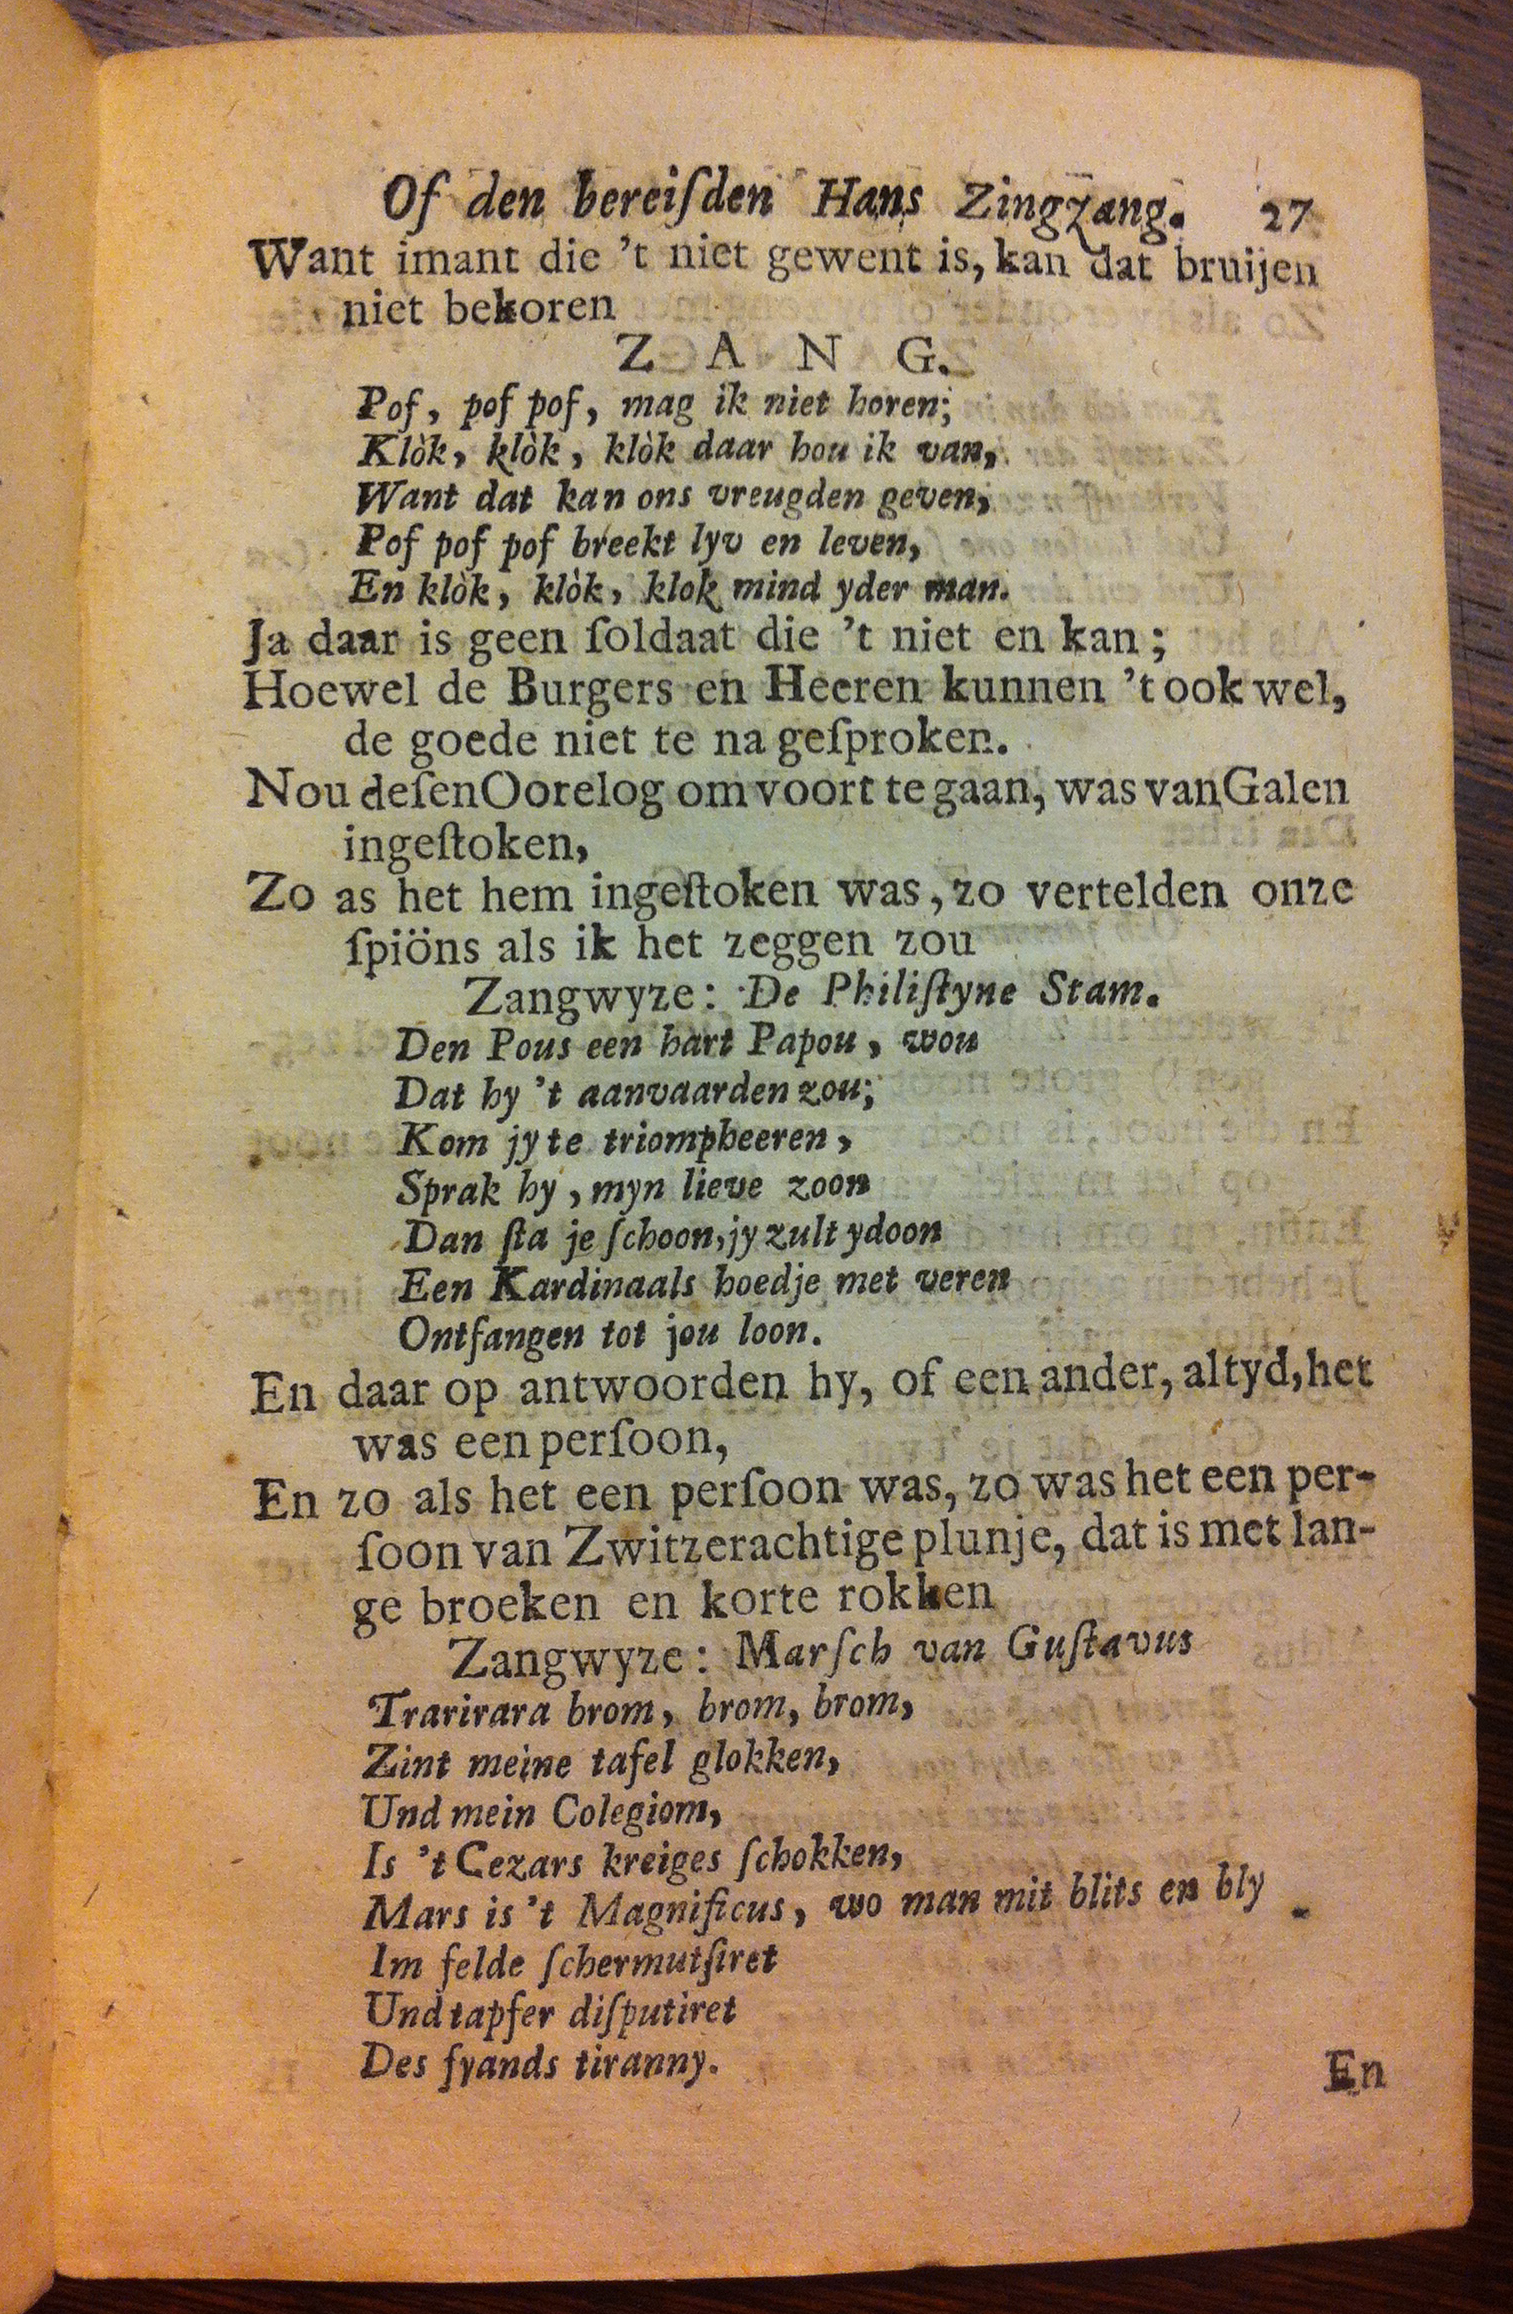 Of den bereiſden Hans Zingzang. 27
Want imant die 't niet gewent is, kan dat bruijen
niet bekoren
Z A N G.
Pof, pof pof, mag ik niet horen;
Klòk, klòk, klòk daar hou ik van,
Want dat kan ons vreugden geven,
Pof pof pof breekt lyv en leven,
En klòk, klòk, klok mind yder man.
Ja daar is geen ſoldaat die 't niet en kan;
Hoewel de Burgers en Heeren kunnen 't ook wel,
de goede niet te na geſproken.
Nou deſen Oorelog om voort te gaan, was van Galen
ingeſtoken,
Zo as het hem ingeſtoken was, zo vertelden onze
ſpiöns als ik het zeggen zou
Zangwyze: De Philiſtyne Stam.
Den Pous een hart Papou, wou
Dat hy 't aanvaarden zou;
Kom jy te triompheeren,
Sprak hy, myn lieve zoon
Dan ſta je ſchoon, jy zult ydoon
Een Kardinaals hoedje met veren
Ontfangen tot jou loon.
En daar op antwoorden hy, of een ander, altyd, het
was een perſoon,
En zo als het een perſoon was, zo was het een per-
ſoon van Zwitzerachtige plunje, dat is met lan-
ge broeken en korte rokken
Zangwyze: Marſch van Guſtavus
Trarirara brom, brom, brom,
Zint meine tafel glokken,
Und mein Colegiom,
Is 't Cezars kreiges ſchokken,
Mars is 't Magnificus, wo man mit blits en bly
Im felde ſchermutſiret
Und tapfer diſputiret
Des fyands tiranny.
En